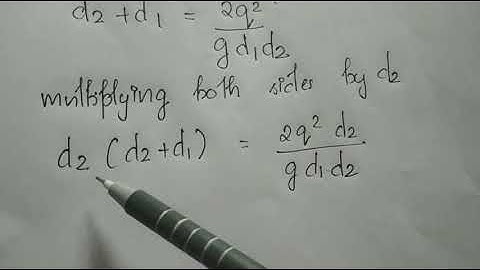 d2 + d1 = 2q² / g d1 d2
multiplying both sides by d2
d2 (d2 + d1) = 2q² d2 / g d1 d2